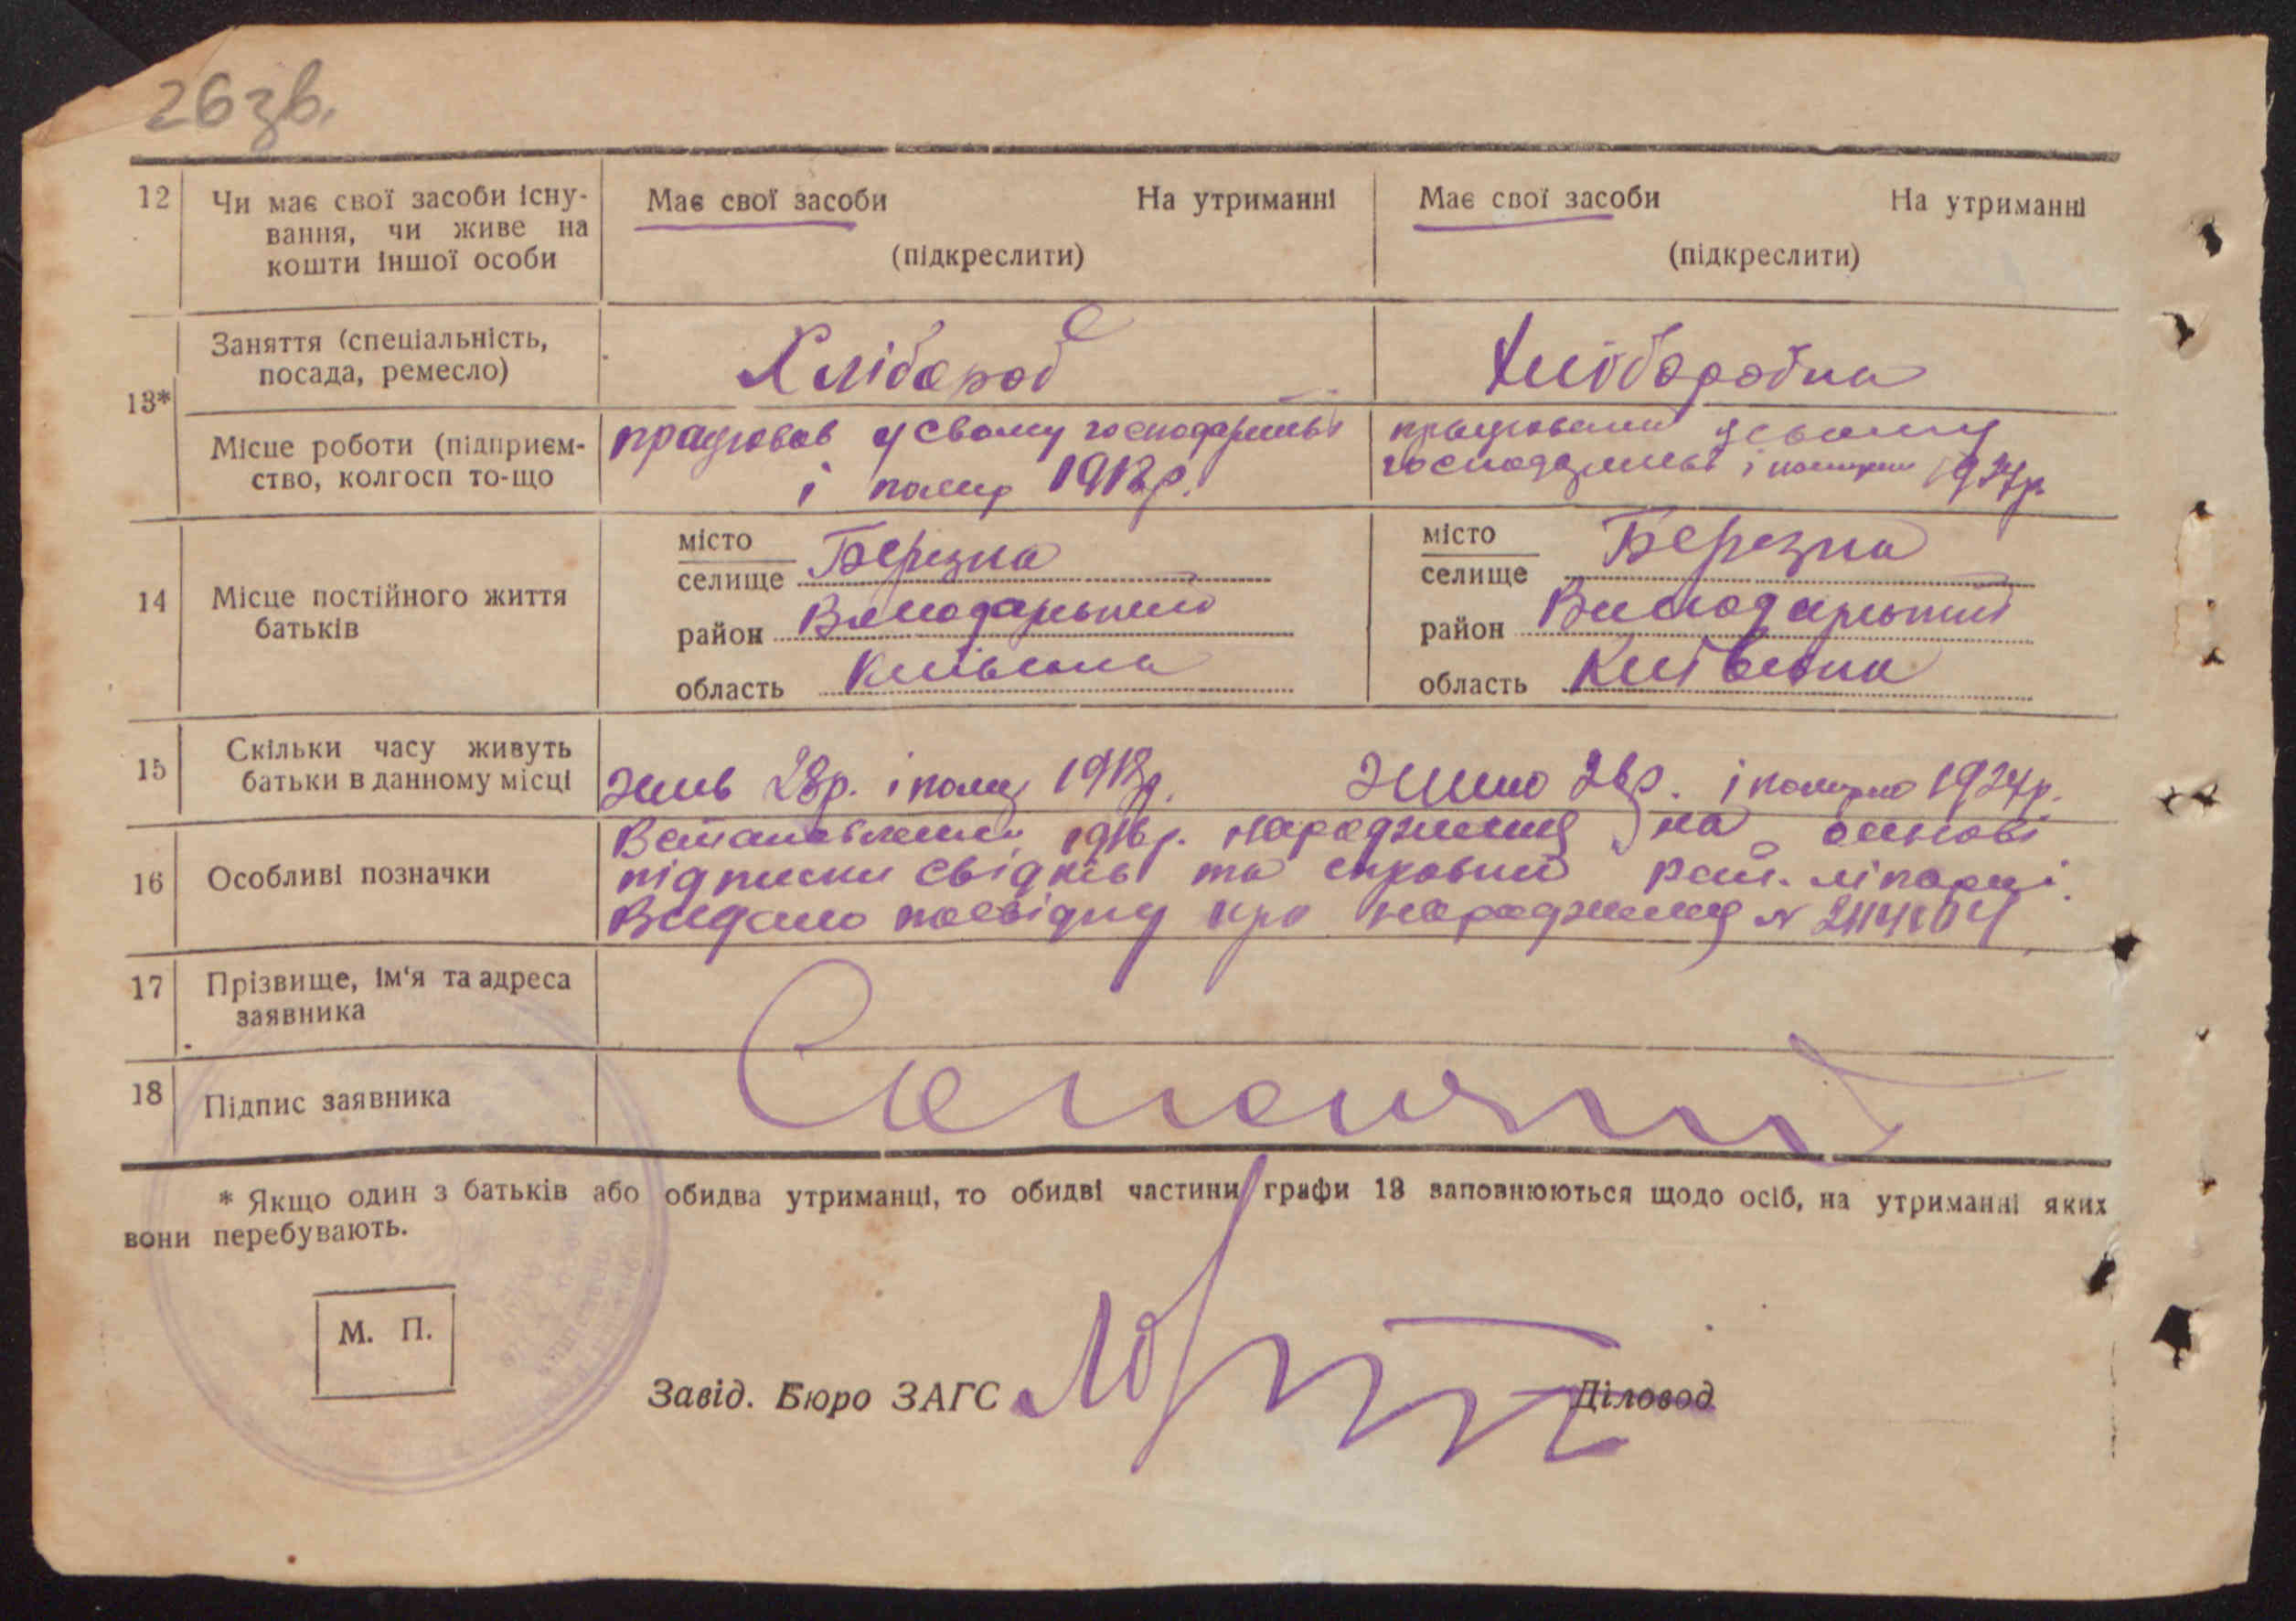 26 зв.
12 Чи має свої засоби існу-
вання, чи живе на
кошти іншої особи
Має свої засоби На утриманні
(підкреслити)
Має свої засоби На утриманні
(підкреслити)
13*
Заняття (спеціальність,
посада, ремесло)
Хлібороб
Хліборобка
Місце роботи (підприєм-
ство, колгосп то-що
працював у свому господарстві
і помер 1918р.
працювала у свому
господарстві і померла
14 Місце постійного життя
батьків
місто
селище Березна
район Володарський
область Київська
місто
селище Березна
район Володарський
область Київська
15 Скільки часу живуть
батьки в данному місці
жив 28р. і помер 1918р.
Жила і померла
16 Особливі позначки
Встановлений 1916р. народження на основі
підписки свідків та справки
Видано посвідку про народження №
17 Прізвище, ім'я та адреса
заявника
18 Підпис заявника
* Якщо один з батьків або обидва утриманці, то обидві частини графи 13 заповнюються щодо осіб, на утриманні яких
вони перебувають.
М. П.
Завід. Бюро ЗАГС
Діловод